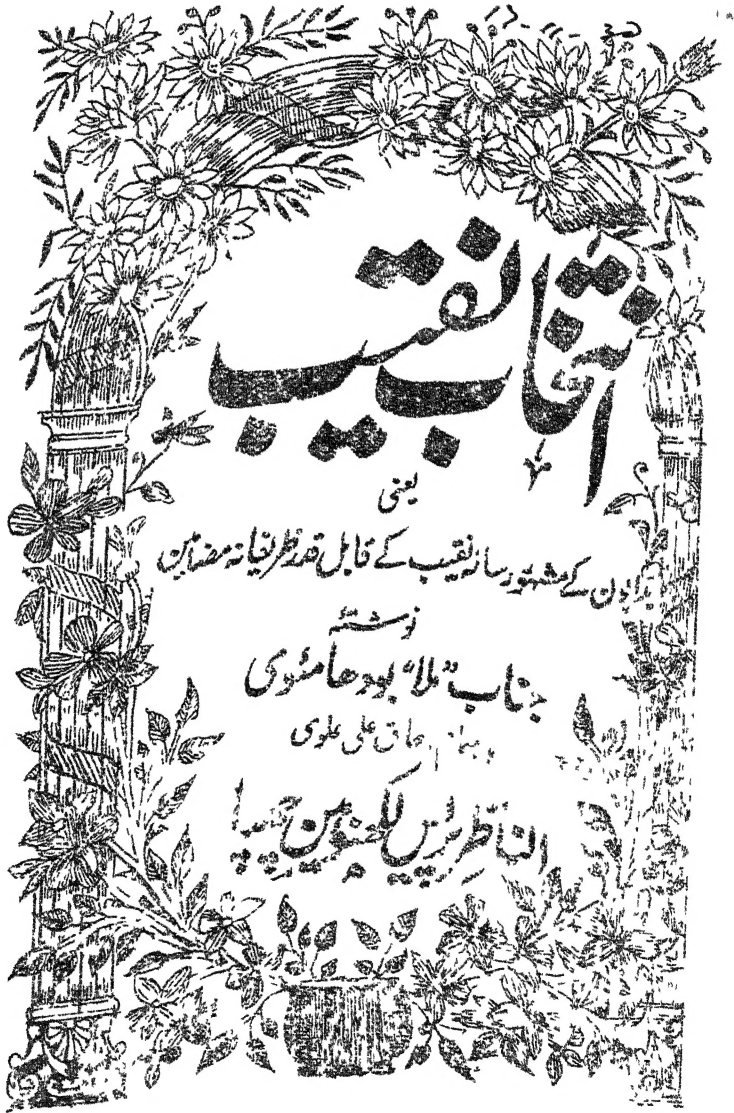 انتخاب نقیب
یعنی
بدایون کے مشہور رسالہ نقیب کے قابل قدر ظریفانہ مضامین
نوشتۂ
جناب "ملا" بودھامئوی
علی علوی
الناظر پریس لکھنؤ مین چھپا